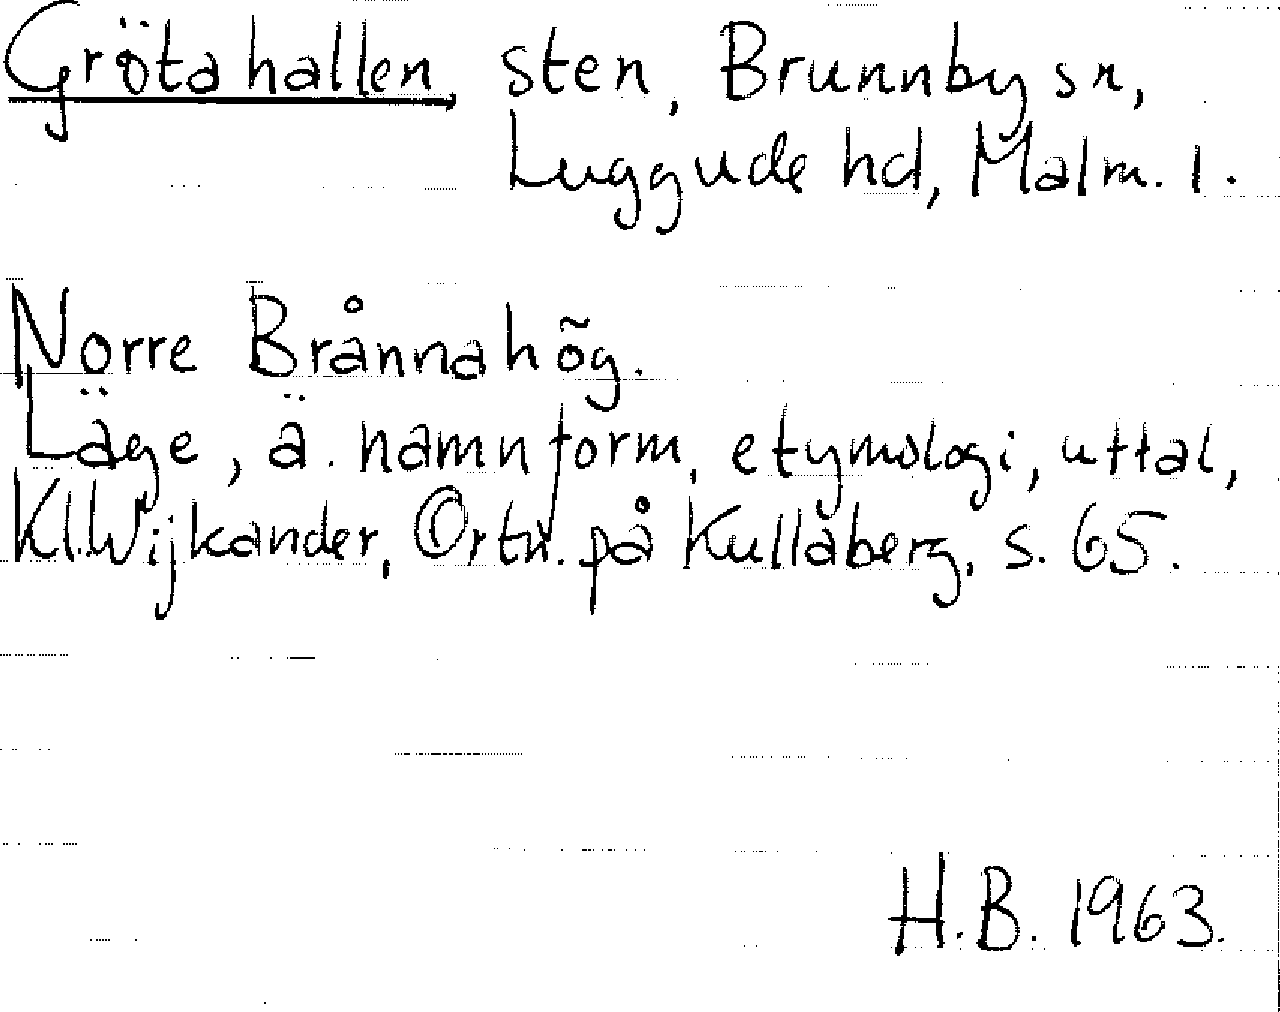 Grötahallen, sten, Brunnby sn,
Luggude hd, Malm. l.
Norre Brånnahög.
Läge, ä. namnform, etymologi, uttal,
Kl. Wijkander, Ortn. på Kullaberg, s. 65.
H.B. 1963.